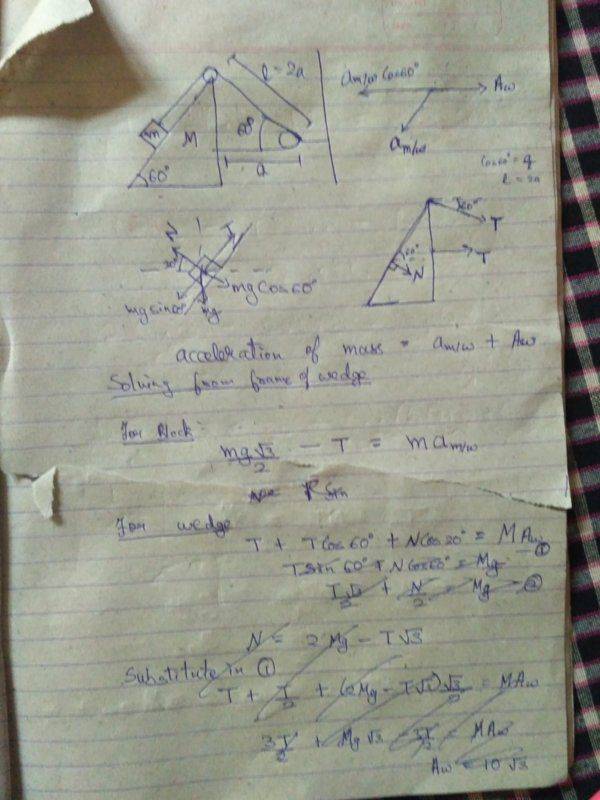 l = 2a
m
M
60°
60°
a
am/w Cos60°
Aw
am/w
Cos60° =
l = 2a
N
T
30°
mg Cos60°
mg sin60°
mg
60°
T
T
60°
N
acceleration of mass = am/w + Aw
Solving from frame of wedge
For Block:
mg√3/2 - T = m am/w
For wedge
T + T Cos60° + N Cos30° = MAw - ①
T sin 60° + N Cos60° = Mg
T√3/2 + N/2 = Mg - ②
N = 2Mg - T√3
Substitute in ①
T + T/2 + (2Mg - T√3)√3/2 = MAw
3T/2 + Mg√3 - 3T/2 = MAw
Aw = 10√3